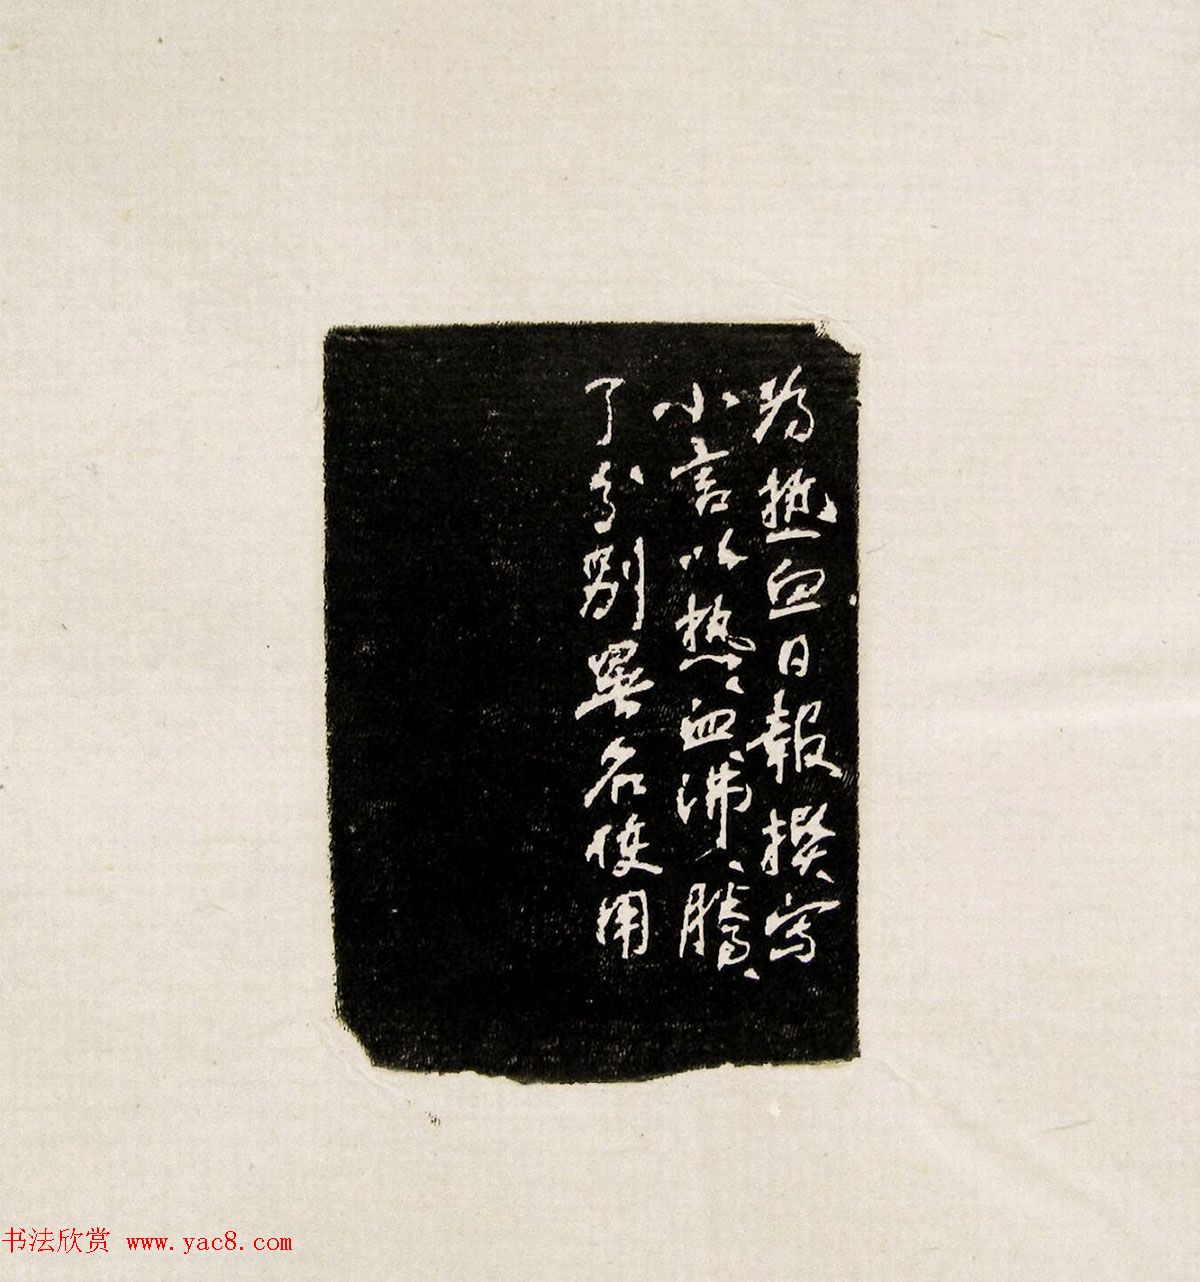 为热血日報撰写
小言以热、血沸、腾、
了分别署名使用
书法欣赏 www.yac8.com